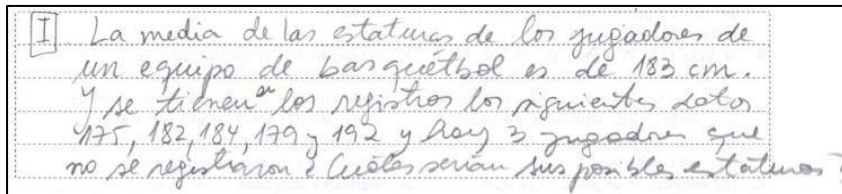 I La media de las estaturas de los jugadores de
un equipo de basquetbol es de 183 cm.
Y se tienen en los registros los siguientes datos
175, 182, 184, 179 y 192 y hay 3 jugadores que
no se registraron ¿Cuáles serían sus posibles estaturas?